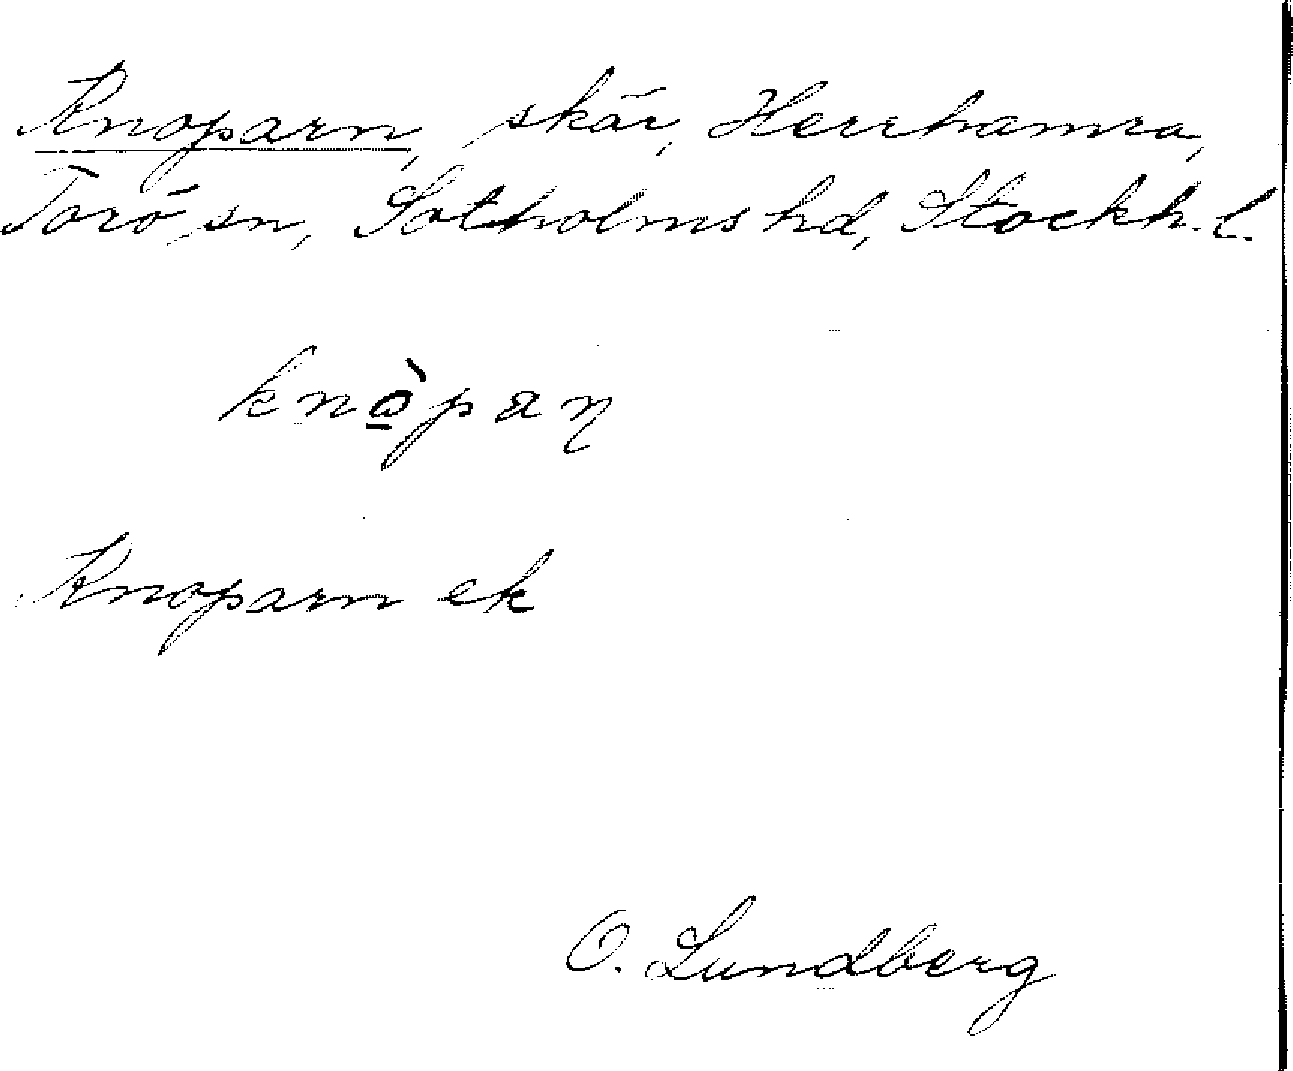 Knoparn, skär, Herrhamra,
Torö sn, Sotholms hd, Stockh. l.
knò̲paꞃ
Knoparn ek
O. Lundberg